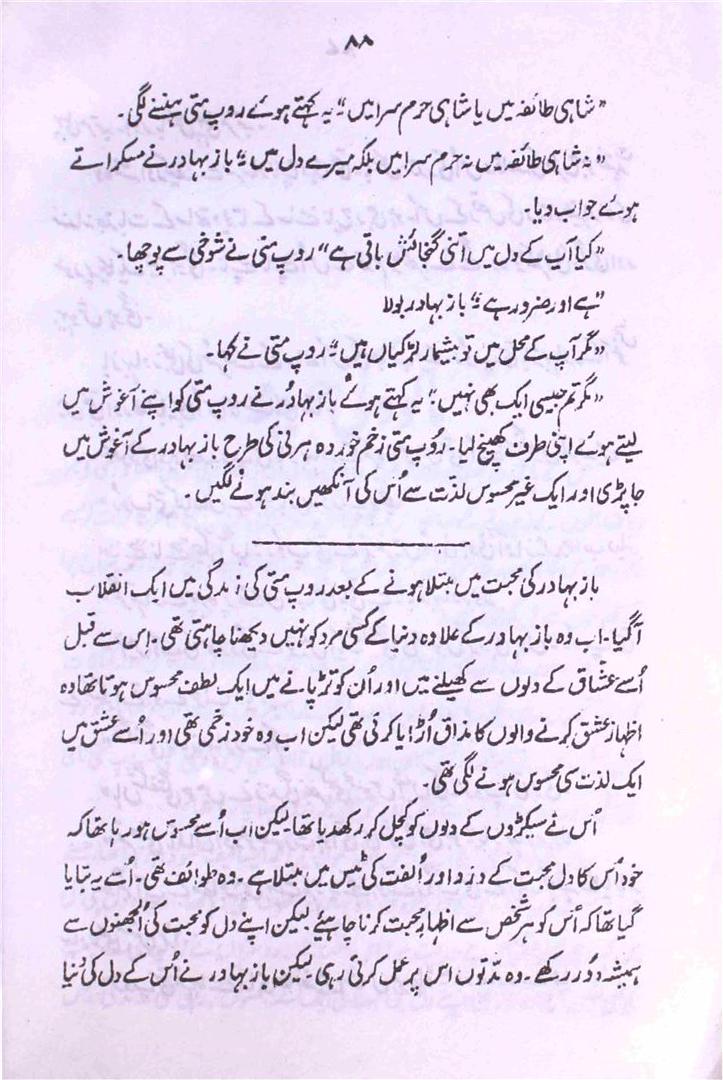 ۸۸
”شاہی طائفہ میں یا شاہی حرم سرا میں“؛ یہ کہتے ہوئے روپ متی ہنسنے لگی۔
”نہ شاہی طائفہ میں نہ حرم سرا میں بلکہ میرے دل میں“؛ باز بہادر نے مسکراتے
ہوئے جواب دیا۔
”کیا آپ کے دل میں اتنی گنجائش باقی ہے“ روپ متی نے شوخی سے پوچھا۔
”ہے اور ضرور ہے“؛ باز بہادر بولا
”مگر آپ کے محل میں تو بیشمار لڑکیاں ہیں“؛ روپ متی نے کہا۔
”مگر تم جیسی ایک بھی نہیں“؛ یہ کہتے ہوئے باز بہادُر نے روپ متی کو اپنے آغوش میں
لیتے ہوئے اپنی طرف کھینچ لیا۔ رُوپ متی زخم خوردہ ہرنی کی طرح باز بہادر کے آغوش میں
جا پڑی اور ایک غیر محسوس لذت سے اُس کی آنکھیں بند ہونے لگیں۔
باز بہادر کی محبت میں مبتلا ہونے کے بعد روپ متی کی زندگی میں ایک انقلاب
آ گیا۔ اب وہ باز بہادر کے علاوہ دنیا کے کسی مرد کو نہیں دیکھنا چاہتی تھی۔ اس سے قبل
اُسے عشّاق کے دلوں سے کھیلنے میں اور اُن کو تڑپانے میں ایک لطف محسوس ہوتا تھا وہ
اظہار عشق کرنے والوں کا مذاق اُڑایا کرتی تھی لیکن اب وہ خود زخمی تھی اور اُسے عشق میں
ایک لذت سی محسوس ہونے لگی تھی۔
اُس نے سیکڑوں کے دلوں کو کچل کر رکھدیا تھا لیکن اب اُسے محسوس ہو رہا تھا کہ
خود اُس کا دل محبت کے درد اور اُلفت کی ٹیس میں مبتلا ہے۔ وہ طوائف تھی۔ اُسے یہ بتایا
گیا تھا کہ اُس کو ہر شخص سے اظہار محبت کرنا چاہیئے لیکن اپنے دل کو محبت کی اُلجھنوں سے
ہمیشہ دُور رکھے۔ وہ مدّتوں اس پر عمل کرتی رہی لیکن باز بہادر نے اُس کے دل کی دُنیا